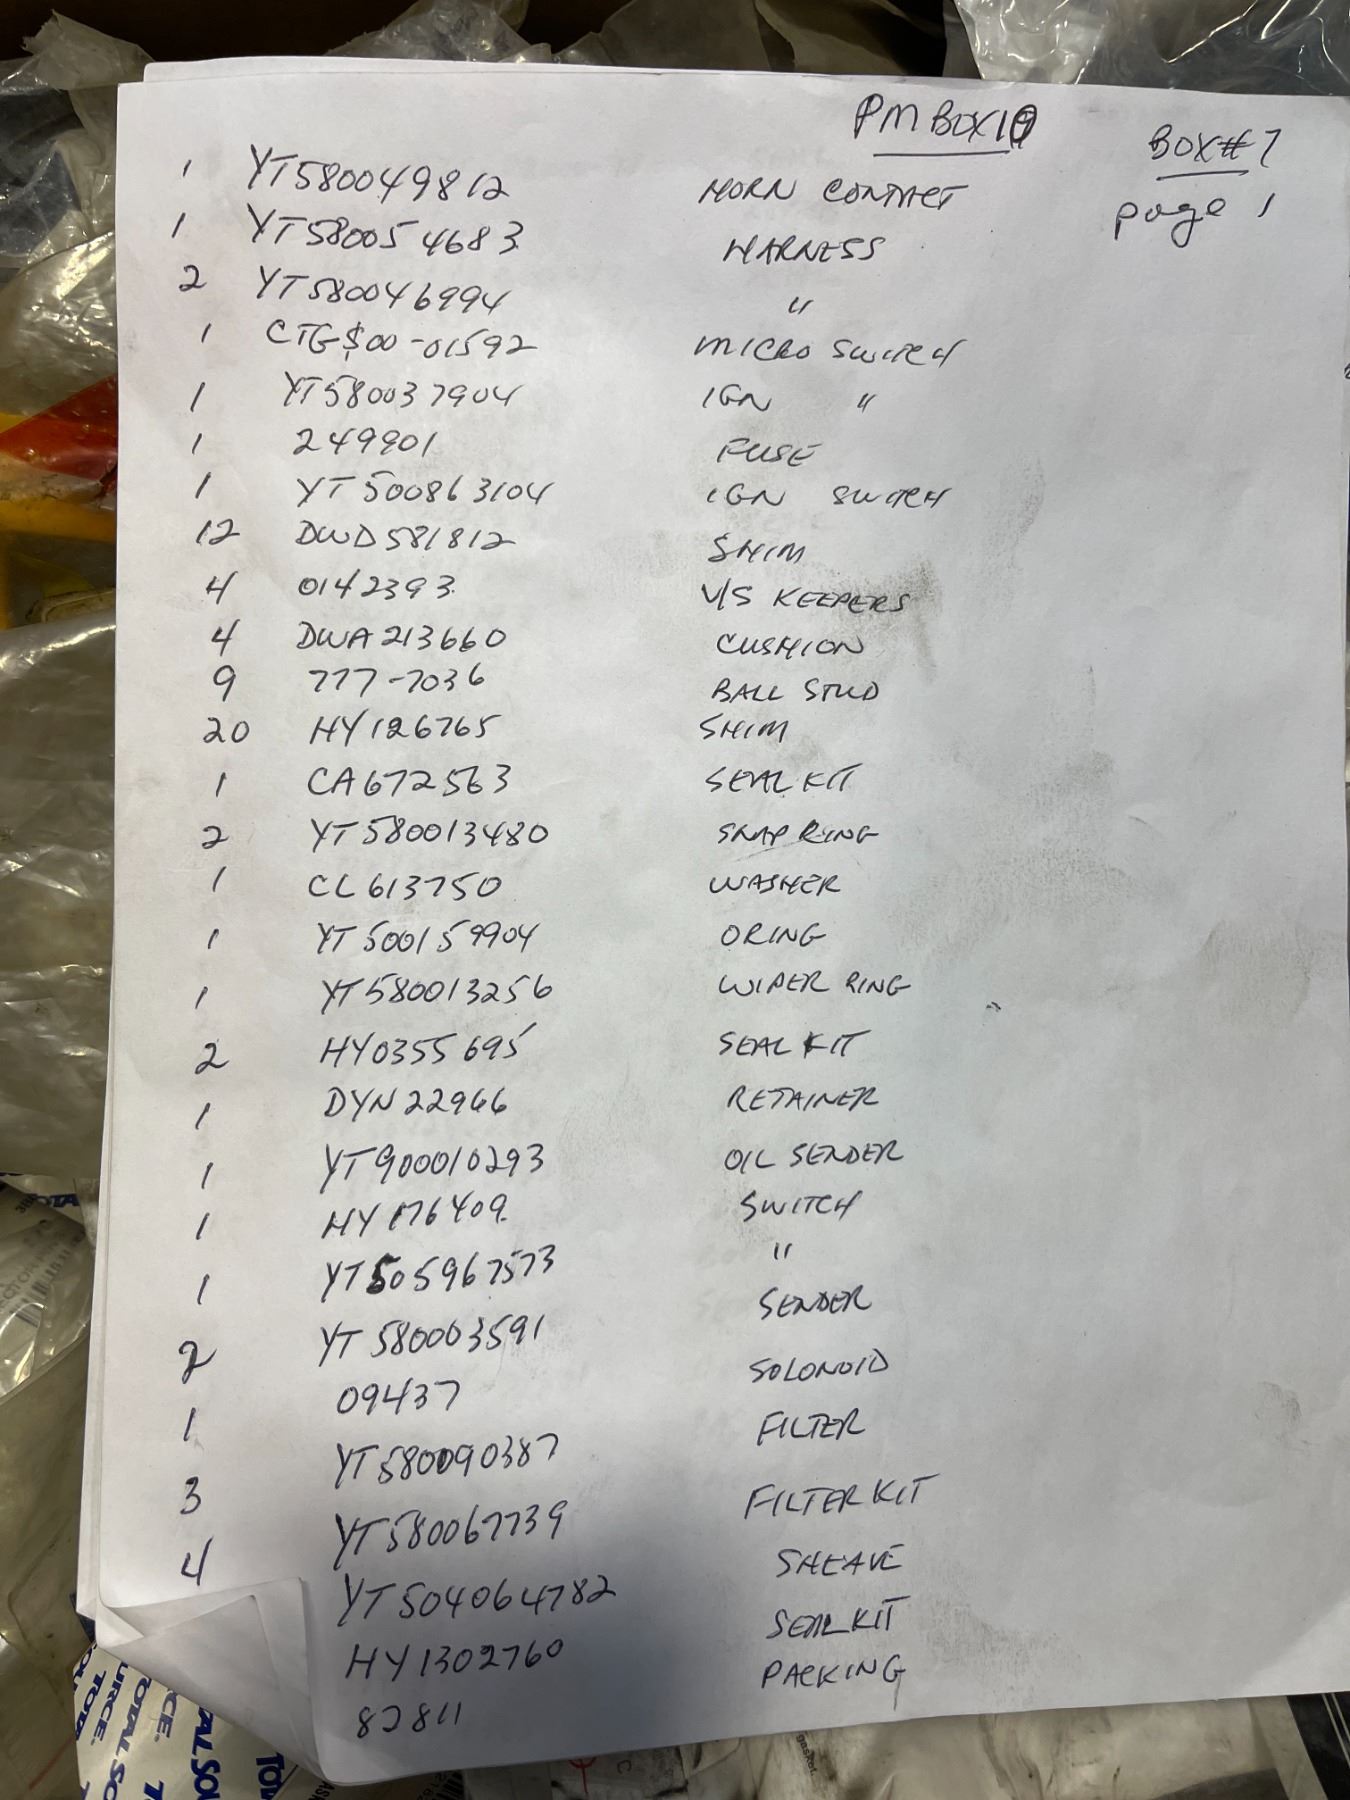 PM BOX 10
BOX#7
page 1
1 YT580049812 HORN CONTACT
1 YT580054683 HARNESS
2 YT580046994 "
1 CTG$00-01592 MICRO SWITCH
1 YT580037904 IGN "
1 249901 FUSE
1 YT500863104 IGN SWITCH
12 DWD581812 SHIM
4 0142393 V/S KEEPERS
4 DWA213660 CUSHION
9 777-7036 BALL STUD
20 HY126765 SHIM
1 CA672563 SEAL KIT
2 YT580013480 SNAP RING
1 CL613750 WASHER
1 YT500159904 ORING
1 YT580013256 WIPER RING
2 HY0355695 SEAL KIT
1 DYN22966 RETAINER
1 YT900010293 OIL SENDER
1 HY176409 SWITCH
1 YT505967573 "
2 YT580003591 SENDER
1 09437 SOLONOID
3 YT580090387 FILTER
4 YT580067739 FILTER KIT
YT504064782 SHEAVE
HY1302760 SEAL KIT
82811 PACKING
TOTAL SOURCE.
gasket